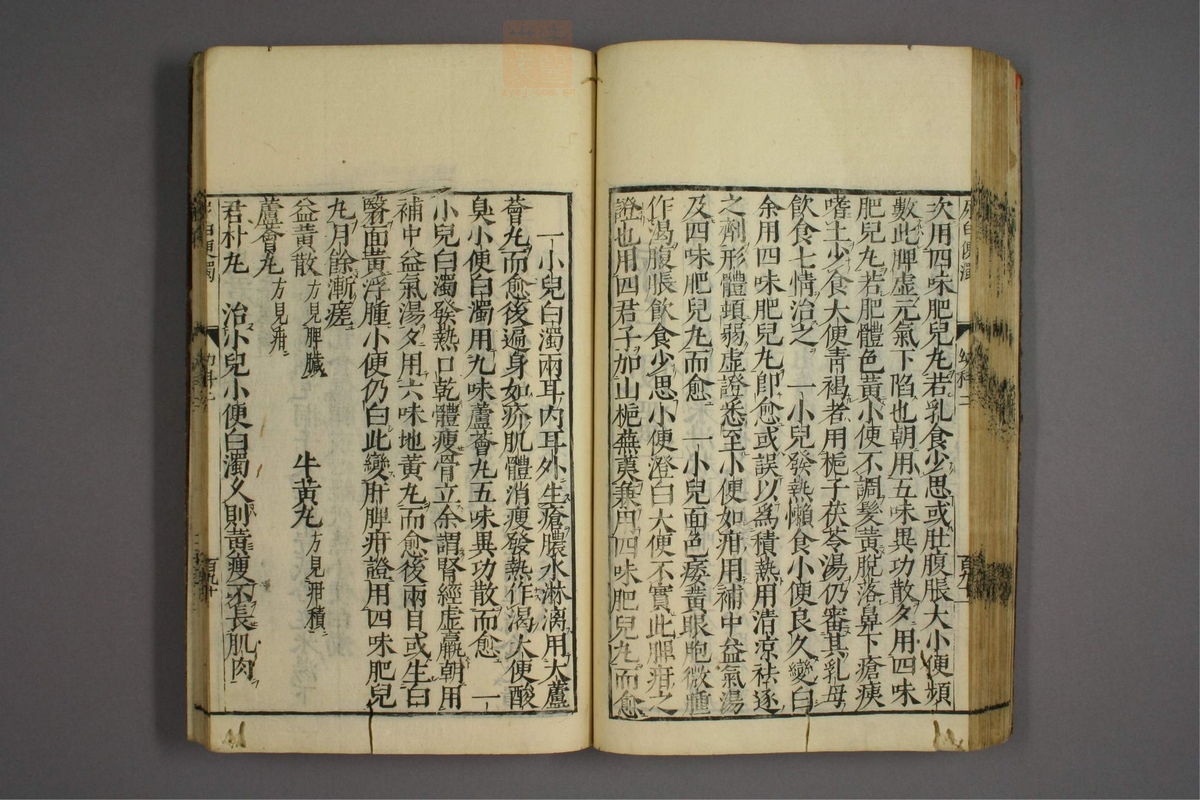 尿白便濁
幼科二
百九十
次用四味肥兒丸若乳食少思或肚腹脹大小便頻
數此脾虛元氣下陷也朝用五味異功散夕用四味
肥兒丸若肥體色黃小便不調髮黃脫落鼻下瘡痍
嗜土少食大便靑褐者用梔子茯苓湯仍審其乳母
飮食七情治之　一小兒發熱懶食小便良久變白
余用四味肥兒丸卽愈或誤以爲積熱用淸凉祛逐
之劑形體頓弱虛證悉至小便如疳用補中益氣湯
及四味肥兒丸而愈　一小兒面色痿黃眼胞微腫
作渴腹脹飮食少思小便澄白大便不實此脾疳之
證也用四君子加山梔蕪荑兼用四味肥兒丸而愈
一小兒白濁兩耳內耳外生瘡膿水淋漓用大蘆
薈丸而愈後遍身如疥肌體消瘦發熱作渴大便酸
臭小便白濁用九味蘆薈丸五味異功散而愈　一
小兒白濁發熱口乾體瘦骨立余謂腎經虛羸朝用
補中益氣湯夕用六味地黃丸而愈後兩目或生白
翳面黃浮腫小便仍白此變肝脾疳證用四味肥兒
丸月餘漸瘥
益黃散 方見脾臟　牛黃丸 方見疳積
蘆薈丸 方見疳
君朴丸　治小兒小便白濁久則黃瘦不長肌肉